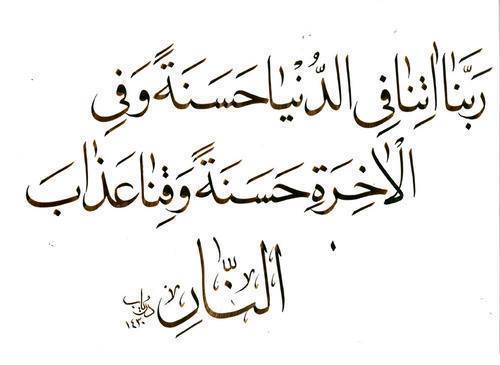 رَبَّنَا اٰتِنَا فِي الدُّنْيَا حَسَنَةً وَفِي
الْاٰخِرَةِ حَسَنَةً وَقِنَا عَذَابَ
النَّارِ
١٤٣٠